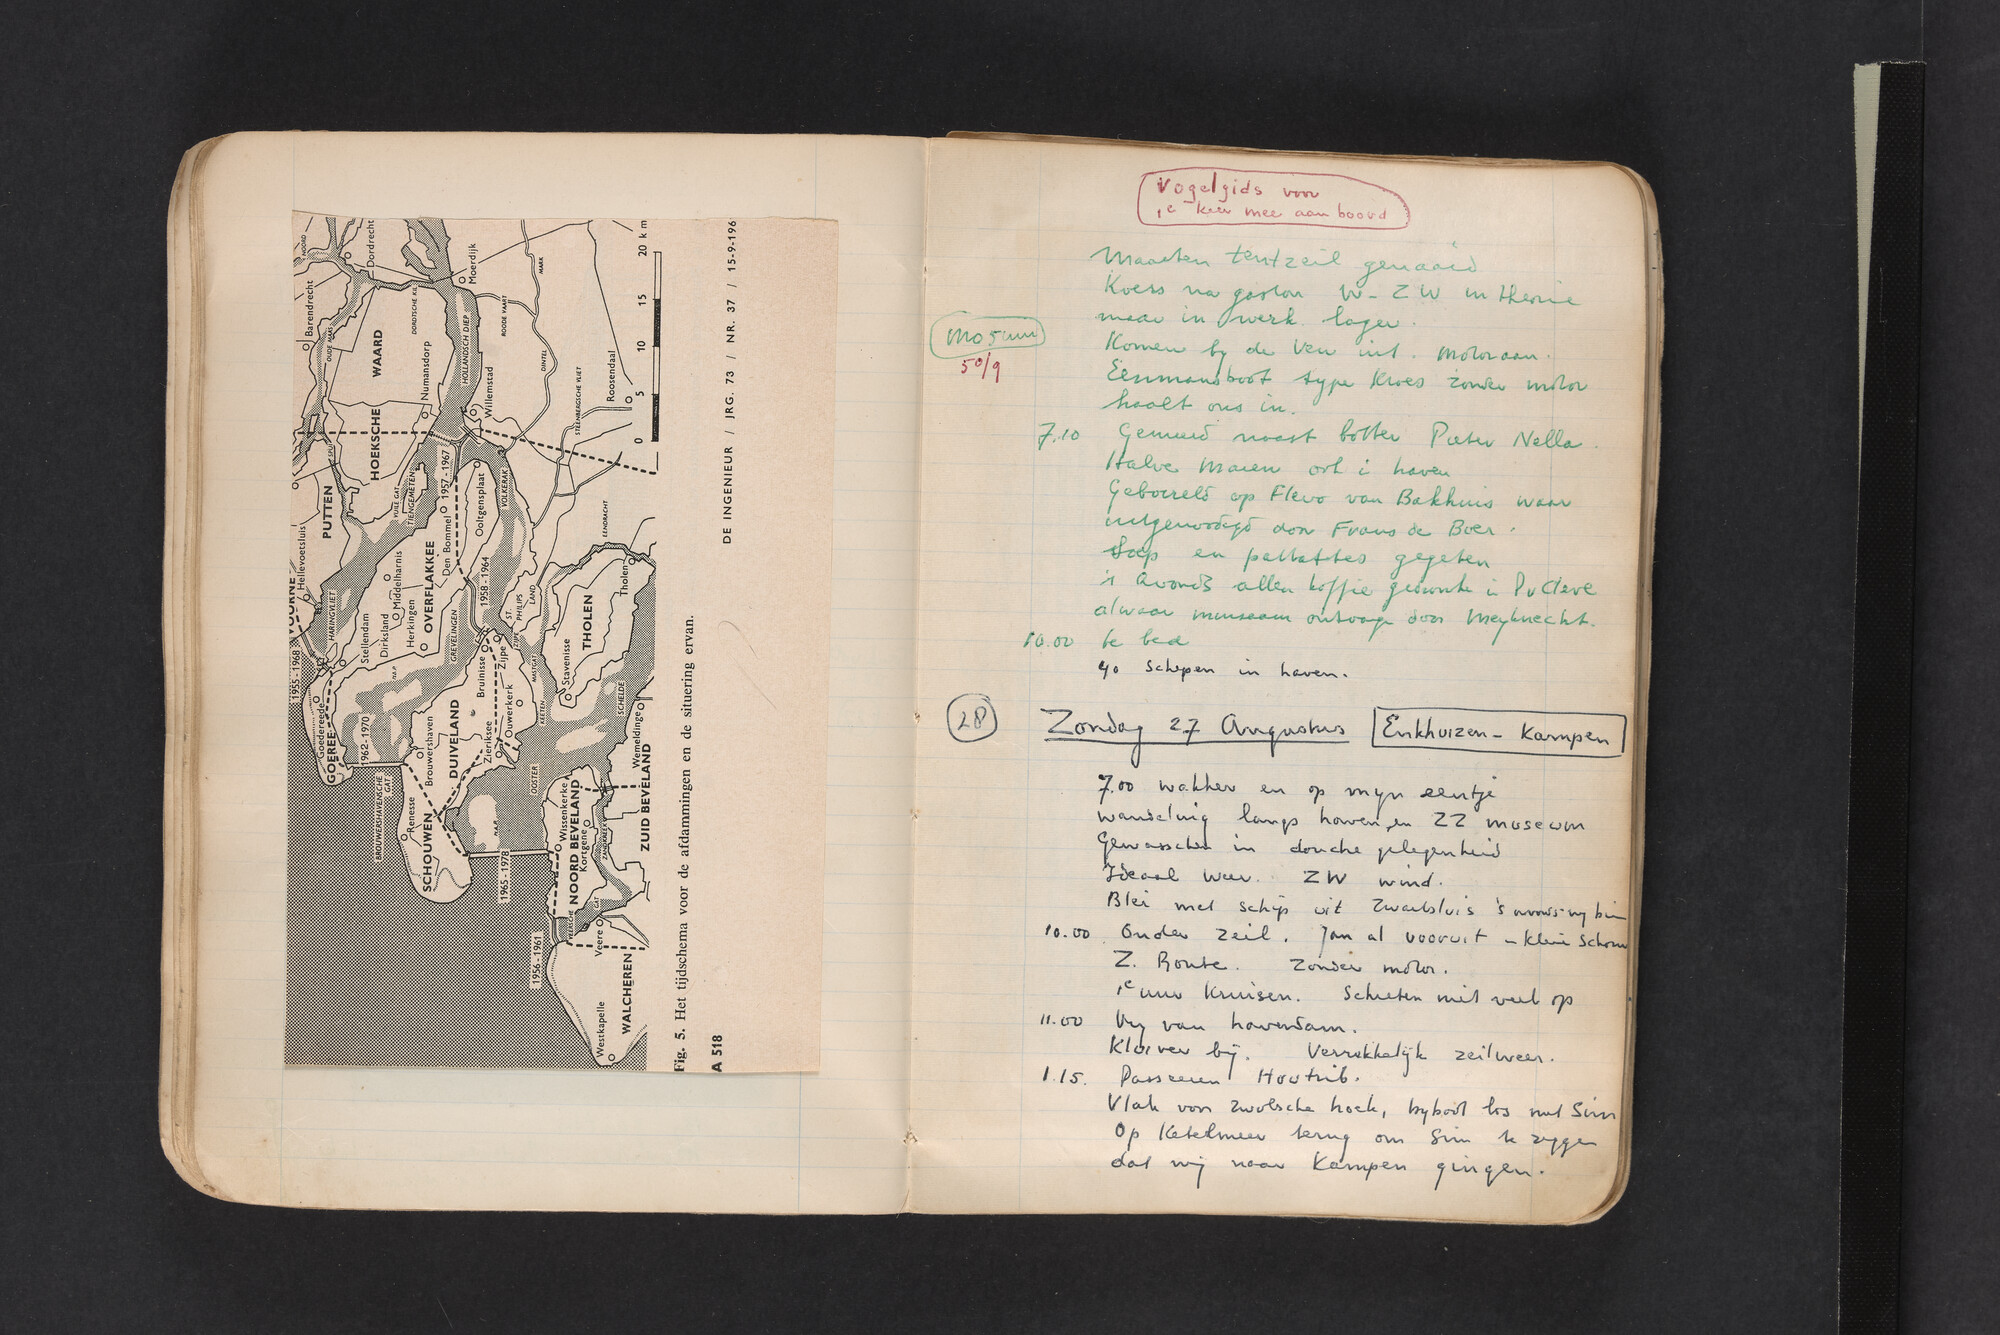 NOORD
Dordrecht
Barendrecht
OUDE MAAS
DORDTSCHE KIL
Moerdijk
WAARD
HOEKSCHE
Numansdorp
HOLLANDSCH DIEP
Willemstad
ROODE VAART
MARK
DINTEL
STEENBERGSCHE VLIET
Roosendaal
0 5 10 15 20 km
PUTTEN
SPUI
VUILE GAT
TIENGEMETEN
1957-1967
Hellevoetsluis
VOORNE
HARINGVLIET
Middelharnis
Den Bommel
Ooltgensplaat
VOLKERAK
OVERFLAKKEE
Stellendam
Dirksland
Herkingen
1958-1964
GREVELINGEN
ST. PHILIPS LAND
EENDRACHT
Tholen
THOLEN
1955-1968
Goedereede
GOEREE
1962-1970
BROUWERSHAVENSCHE GAT
Brouwershaven
Bruinisse
Zijpe
ZIJPE
MASTGAT
KEETEN
Stavenisse
DUIVELAND
Zieriksee
Ouwerkerk
SCHOUWEN
Renesse
OOSTER
SCHELDE
Wemeldinge
ZUID BEVELAND
1965-1978
Wissenkerke
NOORD BEVELAND
Kortgene
ZANDKREEK
VEERSCHE GAT
Veere
1956-1961
WALCHEREN
Westkapelle
Fig. 5. Het tijdschema voor de afdammingen en de situering ervan.
A 518
DE INGENIEUR / JRG. 73 / NR. 37 / 15-9-196
Vogelgids voor
1e keer mee aan boord
Maarten tentzeil genaaid
Koers na gaston W-ZW in theorie
maar in werk. lager.
mo 5 uur
50/9
Komen bij de Ven uit. Motor aan.
Eenmansboot type Kroes zonder motor
haalt ons in.
7.10 Gemeerd naast botter Pieter Nella.
Halve Maen ook i haven
Geborreld op Flevo van Bakhuis waar
uitgenodigd door Frans de Boer.
Soep en pattattes gegeten
's Avonds allen koffie gedronken i Pr Cleve
alwaar museum ontvangst door Meyknecht.
10.00 te bed
90 schepen in haven.
28 Zondag 27 Augustus Enkhuizen - Kampen
7.00 wakker en op mijn eentje
wandeling langs haven en ZZ museum
Gewasschen in douche gelegenheid
Ideaal weer. ZW wind.
met schip uit Zwartsluis 's avonds
10.00 Onder zeil. Jan al vooruit - kleine Schouw
Z. Route. Zonder motor.
1e uur Kruisen. Schieten niet veel op
11.00 Vrij van havendam.
Kluiver bij. Verrukkelijk zeilweer.
1.15. Passeeren Houtrib.
Vlak voor Zwolsche hoek, bijboot los met Sim
Op Ketelmeer terug om Sim te zeggen
dat wij naar Kampen gingen.